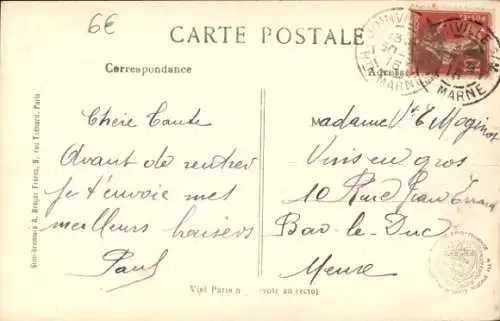 6€
CARTE POSTALE
Correspondance
Adresse
JOINVILLE
HTE MARNE
Chère Tante
Avant de rentrer
je t'envoie mes
meilleurs baisers
Paul
Madame Vve Moginot
Vins en gros
10 Rue Jean
Bar-le-Duc
Meuse
Simi-Bromure A. Breger Frères, 9, rue Thénard, Paris
Visé Paris n
au recto)